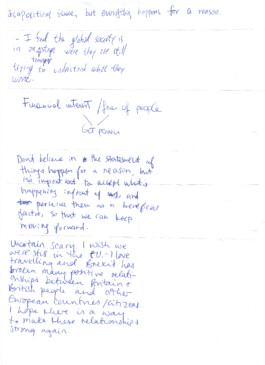 political issue, but everything happens for a reason.
- I find the global society is
in were they are still
trying to understand what they
want.
Financial interest / fear of people
Get power
Dont believe in the statement of
things happen for a reason, but
important to accept whats
happening infront of us, and
percieve them as a beneficial
factor, so that we can keep
moving forward.
Uncertain scary I wish we
were still in the EU. I love
travelling and Brexit has
broken many positive relati-
onships between Britain &
British people and other
European countries/citizens
I hope there is a way
to make these relationships
strong again